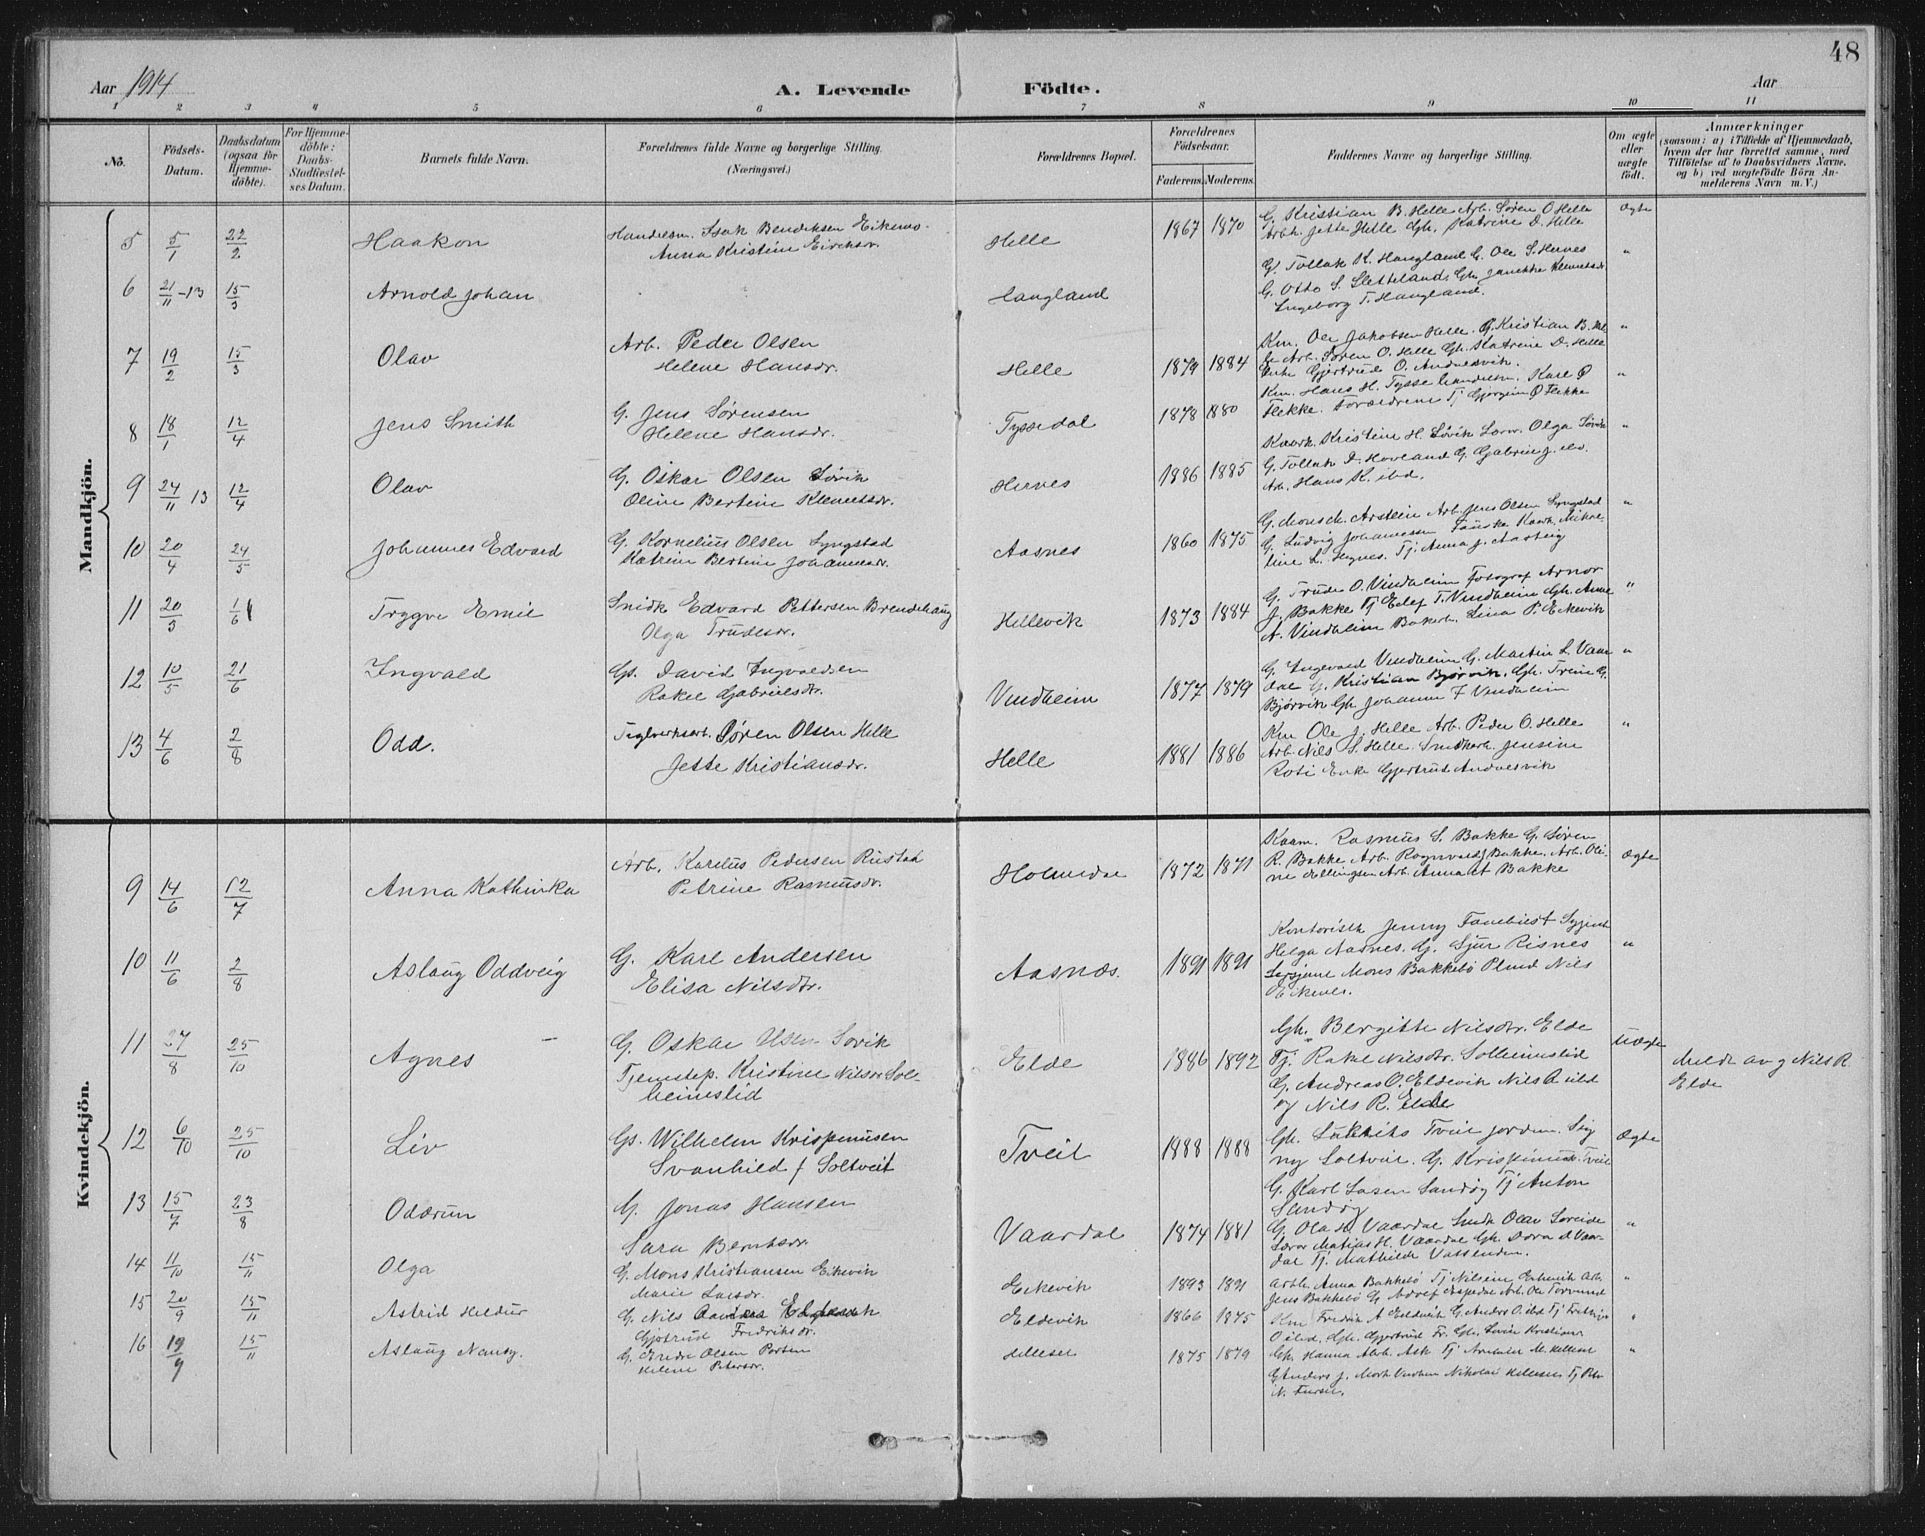 48
Aar 1914
A. Levende Födte.
Aar
1 2 3 4 5 6 7 8 9 10 11
No.
Födsels-Datum.
Daabsdatum (ogsaa for Hjemme-döbte).
For Hjemme-döbte: Daabs-Stadfæstel-ses Datum.
Barnets fulde Navn.
Forældrenes fulde Navne og borgerlige Stilling. (Næringsvei.)
Forældrenes Bopæl.
Forældrenes Födselsaar.
Faderens. Moderens.
Faddernes Navne og borgerlige Stilling.
Om ægte eller uægte födt.
Anmærkninger
(saasom: a) i Tilfælde af Hjemmedaab, hvem der har forrettet samme, med Tilföielse af to Daabsvidners Navne, og b) ved uægtefödte Börn Anmelderens Navn m. V.)
Mandkjön.
5 5/1 22/2 Haakon
Handelsm. Isak Bendiksen Eikemo
Anna Kristine Eriksdr.
Helle 1867 1870
G. Kristian B. Helle Arb. Søren O. Helle
Arbk. Jette Helle Gk. Katrine D. Helle
Ægte
6 21/11-13 15/3 Arnold Johan
Haugland
G. Tollak K. Haugland G. Ole S. Hernes
G. Otto S. Sletteland Gk. Jenikke Klemetsdr.
Ingeborg T. Haugland.
"
7 19/2 15/3 Olav
Arb. Peder Olsen
Helene Hansdr.
Helle 1879 1884
Km. Ole Jakobsen Helle. G. Kristian B. Hel-
le Arb. Søren O. Helle Gk. Katrine D. Helle
Enke Gjertrud O. Andvesvik
"
8 18/1 12/4 Jens Smith
G. Jens Sørensen
Helene Hansdr.
Tyssedal 1878 1880
Km. Hans H. Tysse Handelsm. Karl O
Flekke. Forældrene Tj Gjorgine O Flekke
"
9 24/11 13 12/4 Olav
G. Oskar Olsen Søvik
Oline Bertine Klemetsdr.
Hernes 1886 1885
Kaark. Kristine H. Søvik Lærer. Olga Søvik
G. Tollak D. Hovland G. Gabriel J. ibd.
Arb. Hans K. ibd.
"
10 20/4 24/5 Johannes Edvard
G. Kornelius Olsen Lyngstad
Katrine Bertine Johannesdr.
Aasnes 1860 1875
G. Mons M. Arstein Arb. Jens Olsen Lyngstad
G. Ludvig Johannessen
line L. Hegnes. Tj. Anna J. Aasberg
"
11 20/3 1/6 Trygve Emil
Snidk Edvard Pettersen Brendehaug
Olga Trudesdr.
Hellevik 1873 1884
G. Trude O. Vindheim Fotograf Arnor
J. Bakke Tj Edef T. Vindheim Gk. Anne
A. Vindheim Bakerb. Lina P. Eikevik
"
12 10/5 21/6 Ingvald
Gs. David Ingvaldsen
Rakel Gabrielsdr.
Vindheim 1877 1879
G. Ingevald Vindheim G. Martin L. Vaar
dal G. Kristian Bjørvik, Gk. Trine G.
Bjørvik Gk. Johanne F Vindheim
"
13 4/6 2/8 Odd.
Teglverksarb. Søren Olsen Helle
Jette Kristiansdr.
Helle 1881 1886
Km Ole J. Helle Arb. Peder O. Helle
Arb. Nils S. Helle. Snedkerk. Jensine
Roti Enke Gjertrud Andvesvik
"
Kvindekjön.
9 14/6 12/7 Anna Kathinka
Arb. Karelius Pedersen Rustad
Petrine Rasmusdr.
Holmedal 1872 1871
Kaam. Rasmus S. Bakke G. Søren
R. Bakke Arb. Rognvald Bakke. Arb. Oli-
ne Ellingsen Arb. Anna M Bakke
Ægte
10 11/6 2/8 Aslaug Oddveig
G. Karl Andersen
Elisa Nilsdtr.
Aasnæs. 1891 1891
Kontoristk Jenny Fanebust Syjent
Helga Aasnes. G. Sjur Risnes
Sersjene Mons Bakkebø Nils
Eikevol.
"
11 27/8 25/10 Agnes
G. Oskar Olsen Søvik
Tjenestep. Kristine Nilsdr Sol-
heimslid
Elde 1886 1892
Gk. Bergitte Nilsdtr. Elde
Tj. Rakel Nilsdtr. Solheimslid
G. Andreas O. Eldevik Nils A ibd
og Nils R. Elde
Uægte
Meldt av g Nils R.
Elde
12 6/10 25/10 Liv
Gs. Wilhelm Krispinusen
Svanhild J Soltveit
Tveit 1888 1888
Gk. Tveit Jordm. Sig
ny Soltveit. G. Krispinus Tveit
G. Karl Larsen Sandøy Tj Anton
Sandøy
Ægte
13 15/7 23/8 Oddrun
G. Jonas Hansen
Sara Berntsdr.
Vaardal 1874 1881
G. Ola H. Vaardal Smdk Olav Søreide
Lærer Matias H. Vaardal Gk Dorn d Vaar-
dal Tj. Mathilde Vassenden.
"
14 11/10 15/11 Olga
G. Mons Kristiansen Eikevik
Marie Larsdr.
Eikevik 1893 1891
Arbk. Anna Bakkebø Tj Nilsine Arb.
Jens Bakkebø G Adolf Espedal Arb. Ole Torvund
"
15 20/9 15/11 Astrid Heldur
G. Nils
Gjertrud Fredriksdr.
Eldevik 1866 1875
Km Fredrik A Eldevik G. Anders O. ibd Tj
O ibd. Gk. Gjertrud Fr. Gk. Kristians
"
16 19/9 15/11 Aslaug Nancy.
G. Endre Olsen Porten
Helene Petersdr.
Hellesei 1875 1879
Gk. Hanna Ask Tj M. Hellesei
G Anders J. Nikolai Hellesei Tj Petr
N.
"